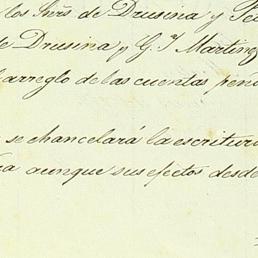 los Sñrs de Drusina y
de Drusina y G. J Martinez
arreglo de las cuentas
se chancelará la escritura
aunque sus efectos desde